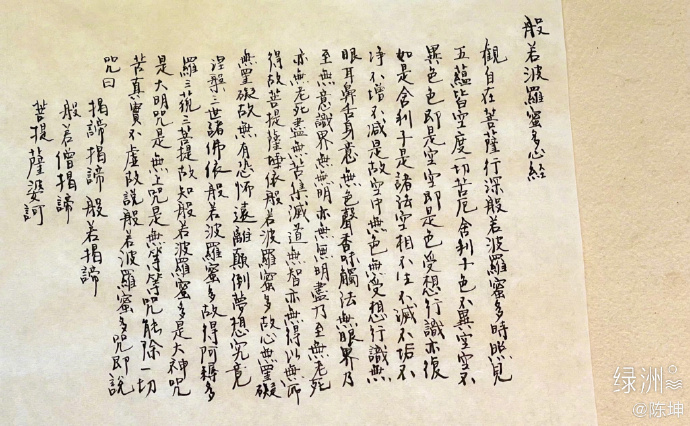 般若波羅蜜多心経
觀自在菩薩行深般若波羅蜜多時照見
五蘊皆空度一切苦厄舍利子色不異空空不
異色色即是空空即是色受想行識亦復
如是舍利子是諸法空相不生不滅不垢不
淨不增不減是故空中無色無受想行識無
眼耳鼻舌身意無色聲香味觸法無眼界乃
至無意識界無無明亦無無明盡乃至無老死
亦無老死盡無苦集滅道無智亦無得以無所
得故菩提薩埵依般若波羅蜜多故心無罣礙
無罣礙故無有恐怖遠離顛倒夢想究竟
涅槃三世諸佛依般若波羅蜜多故得阿耨多
羅三藐三菩提故知般若波羅蜜多是大神咒
是大明咒是無上咒是無等等咒能除一切
苦真實不虛故說般若波羅蜜多咒即說
咒曰
揭諦揭諦 般若揭諦
般若僧揭諦
菩提薩婆訶
绿洲
@陈坤